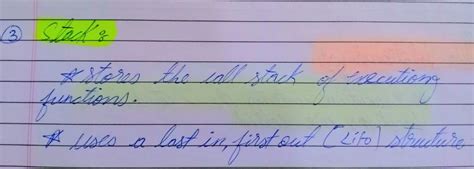 ③ Stack :
* stores the call stack of executiong
functions.
* uses a last in, first out (LIFO) structure